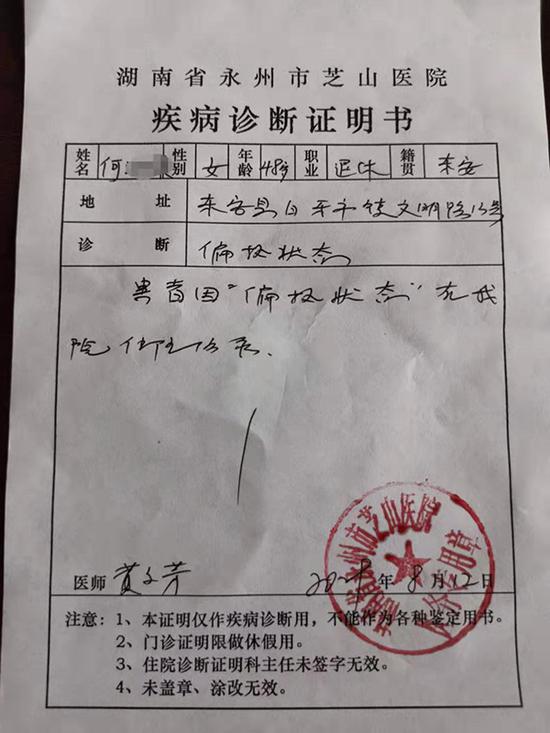 湖南省永州市芝山医院
疾病诊断证明书
姓名 何 性别 女 年龄 48岁 职业 退休 籍贯 东安
地址 东安县白牙市镇文明路
诊断 偏执状态
患者因"偏执状态"在我
院住院治疗.
医师 年 8月12日
湖南省永州市芝山医院
专用章
注意：1、本证明仅作疾病诊断用，不能作为各种鉴定用书。
2、门诊证明限做休假用。
3、住院诊断证明科主任未签字无效。
4、未盖章、涂改无效。